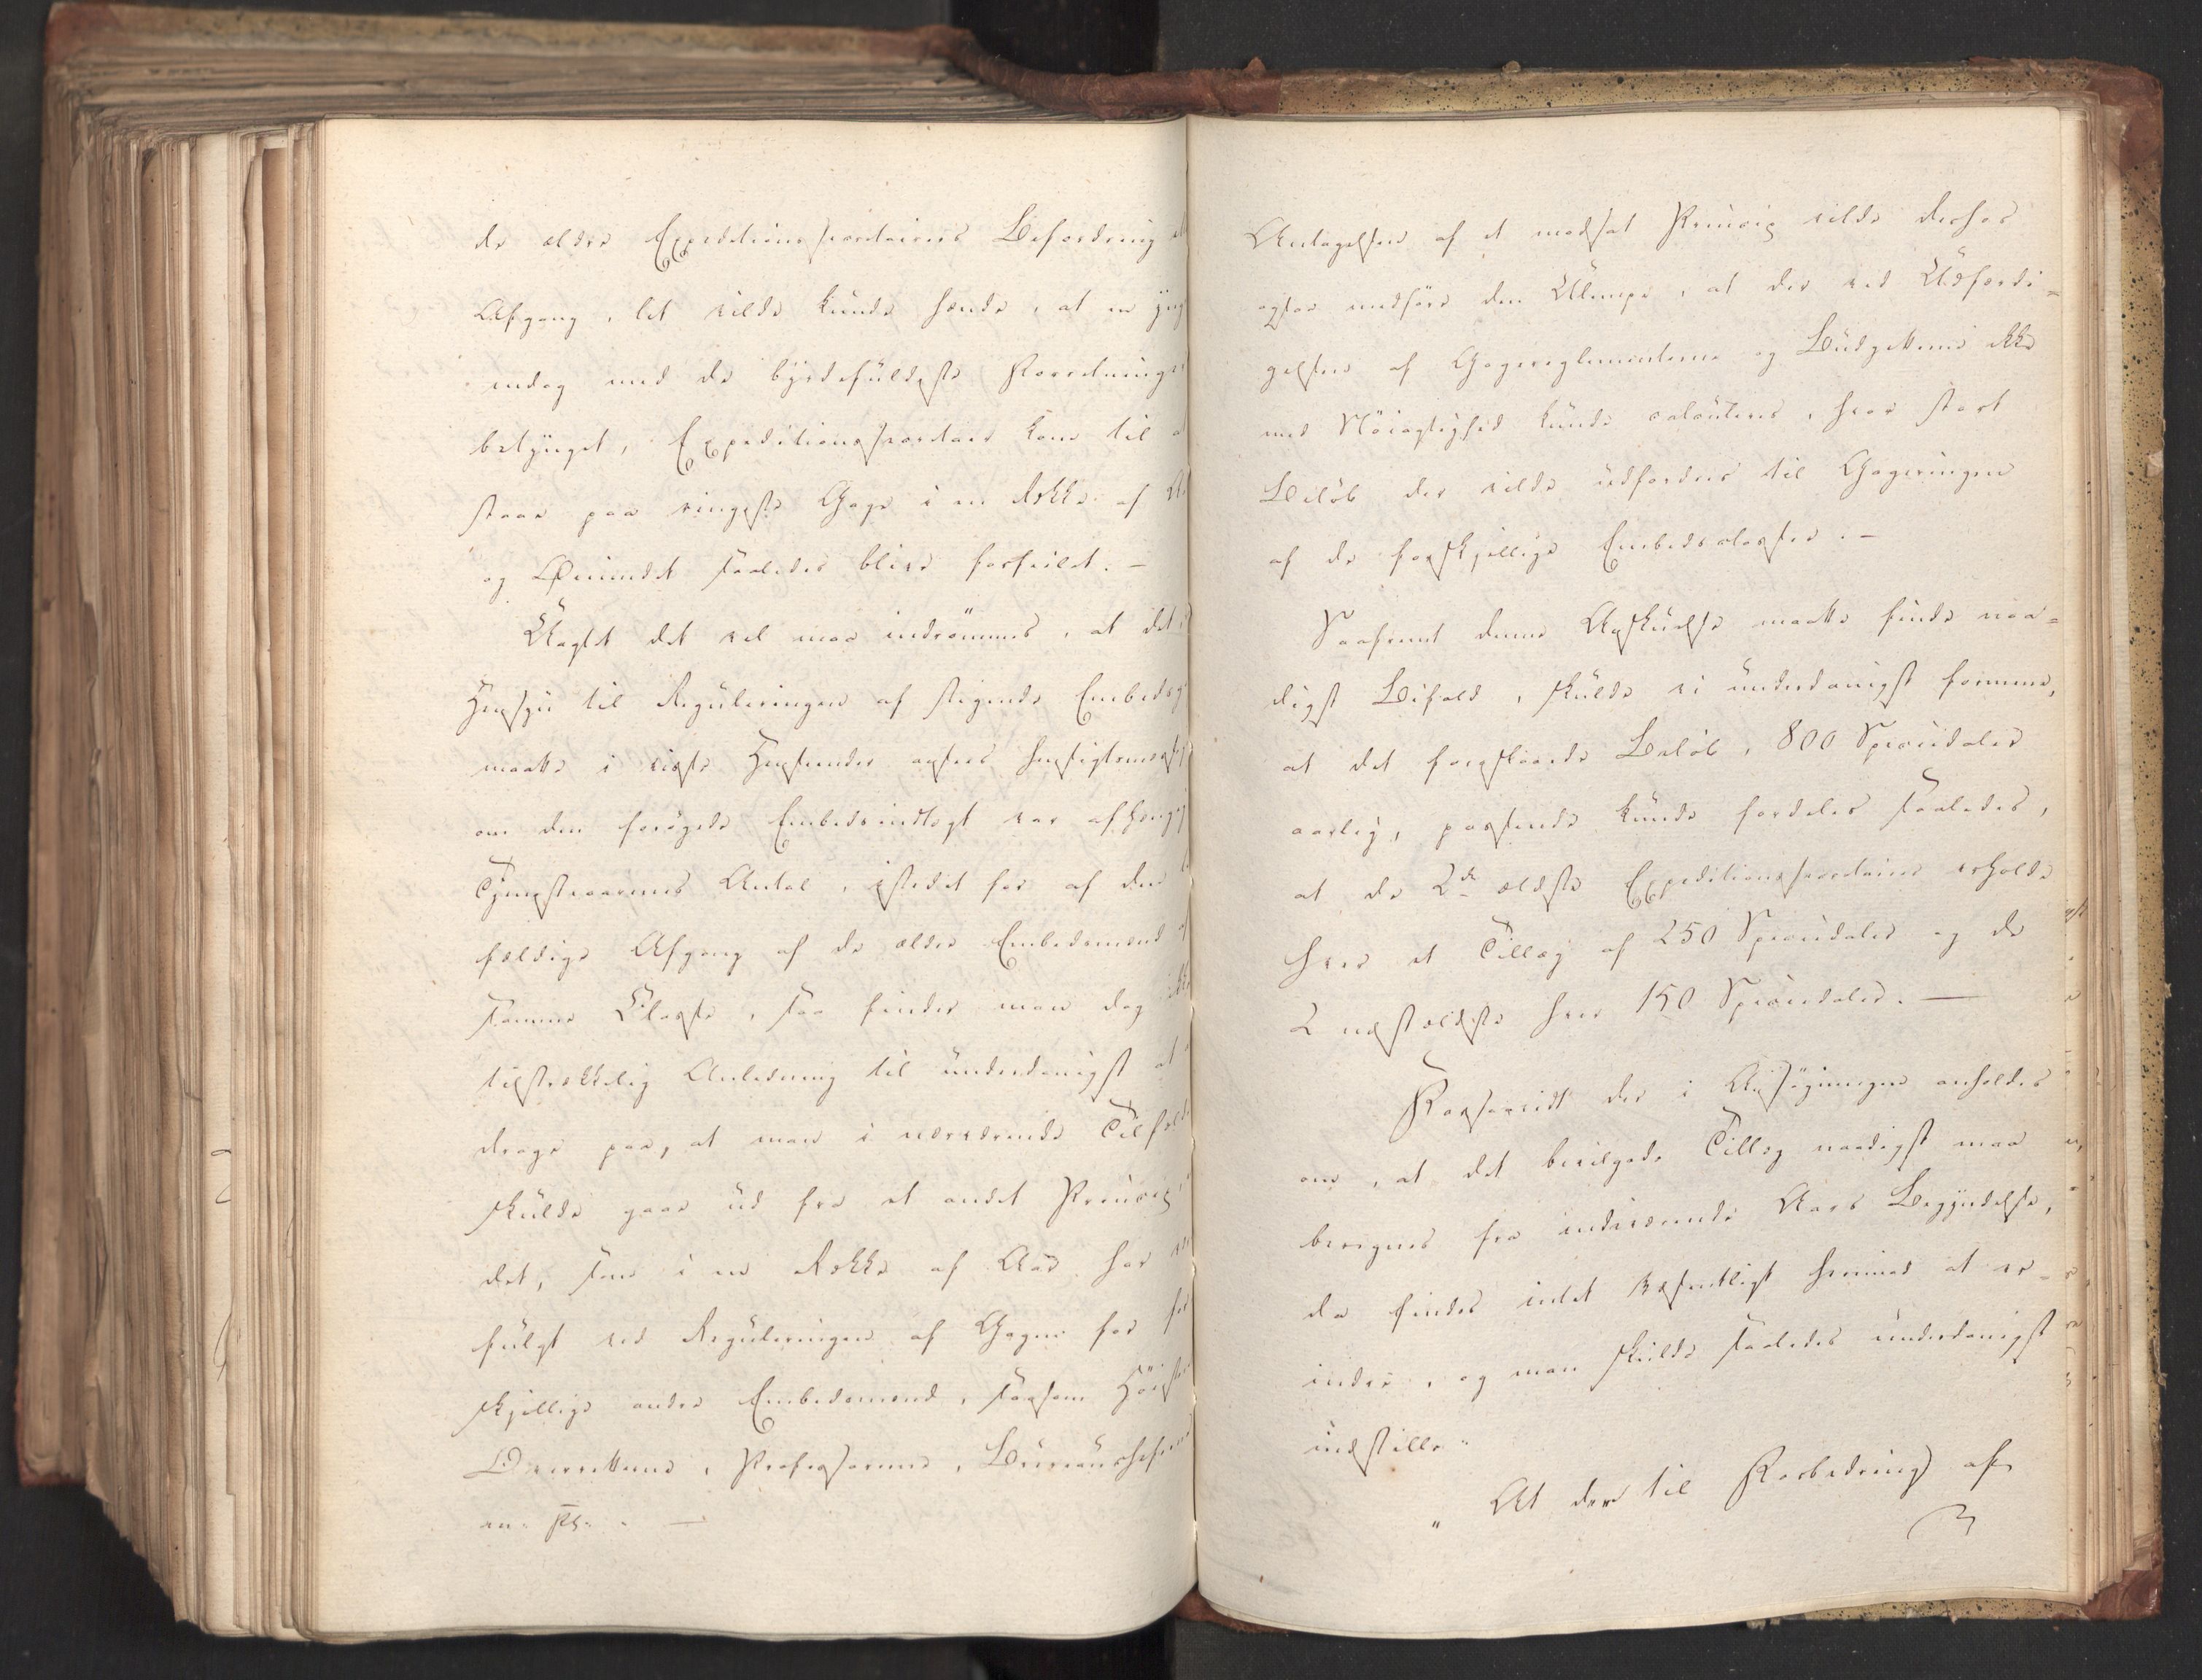 de ældre Expeditionssecretairers Befordring
Afgang, let vilde kunde hende, at en yng
endog med de byrdefuldeste Forretninger
betynget, Expeditionssecretair kom til a
staae paa ringeste Gage i en Række af A
og Øiemedet saaledes blive forfeilet. –
Uagtet det vel maa indrømmes, at det
Hensyn til Reguleringen af stigende Embeds
maatte i visse Henseender agtes hensigtsmæssig
om den forøgede Embedsindtægt var afhængig
Tjenesteaarenes Antal, istedet for af den
fældige Afgang af de ældre Embedsmænd
samme Classe, saa finder man dog ikke
tilstrækkelig Anledning til underdanigst at
drage paa, at man i nærværende Tilfælde
skulde gaae ud fra et andet Princip
det, som i en Række af Aar har
fulgt ved Reguleringen af Gagen for for
skjellige andre Embedsmænd, saasom Høieste
Overretterne, Professorerne, Bureauchefer
m. fl. –
Antagelsen af et modsat Princip vilde derhos
ogsaa medføre den Ulempe, at der ved Udfærdi-
gelsen af Gagereglementerne og Budgetterne ikke
med Nøiagtighed kunde calculeres, hvor stort
Beløb der vilde udfordres til Gageringen
af de forskjellige Embedsclasser. –
Saafremt denne Anskuelse maatte finde naa-
digst Bifald, skulde vi underdanigst formene,
at det foreslaaede Beløb, 800 Speciedaler
aarlig, passende kunde fordeles saaledes,
at de 2de ældste Expeditionssecretairer erholde
hver et Tillæg af 250 Speciedaler og de
2 næstældste hver 150 Speciedaler. –
Forsaavidt der i Ansøgningen anholdes
om, at det bevilgede Tillæg naadigst maa
beregnes fra indeværende Aars Begyndelse,
da findes intet væsentligt herimod at er-
indre, og man skulde saaledes underdanigst
indstille:
"At der til Forbedring af